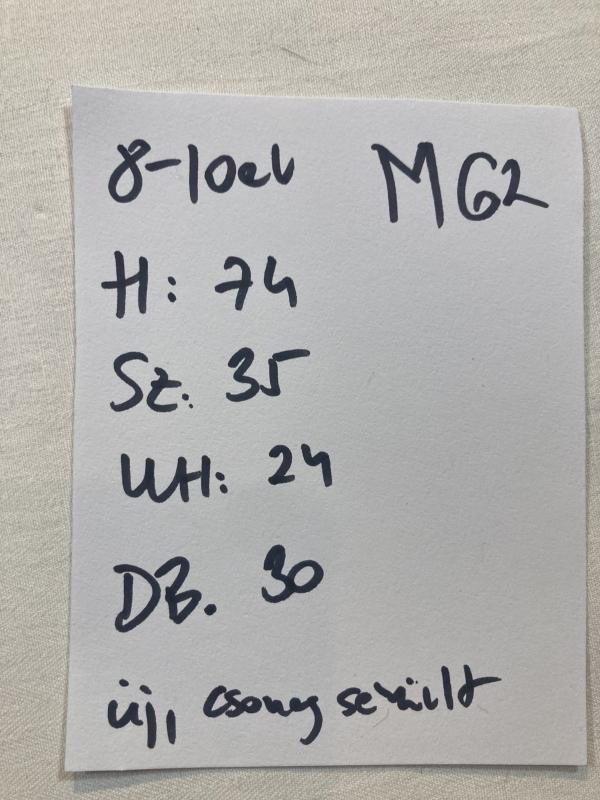 8-10ev MG2
H: 74
Sz: 35
UH: 24
DB. 30
új, csomag sérült